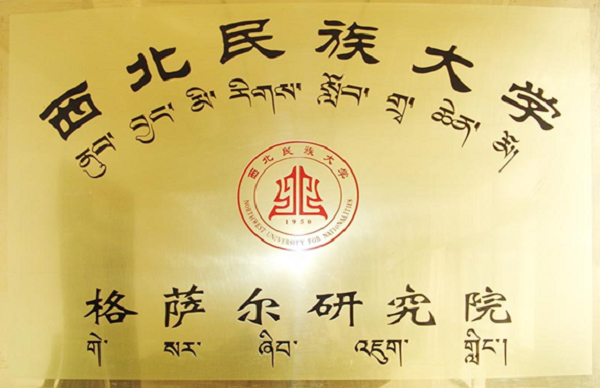 西北民族大学
ནུབ་བྱང་མི་རིགས་སློབ་གྲྭ་ཆེན་མོ།
西北民族大学
1950
NORTHWEST UNIVERSITY FOR NATIONALITIES
格萨尔研究院
གེ་སར་ཞིབ་འཇུག་གླིང་།